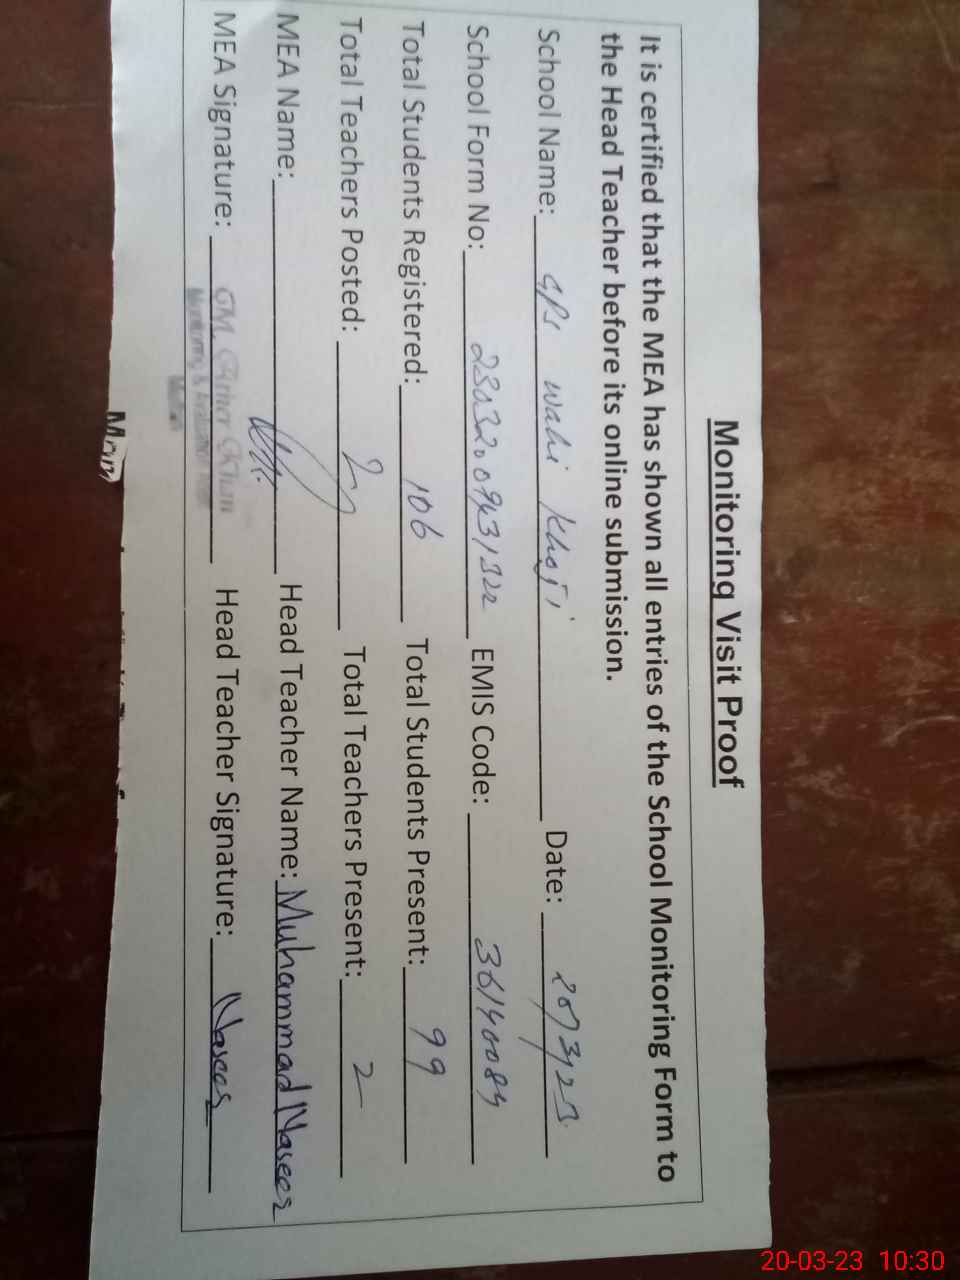 Monitoring Visit Proof
It is certified that the MEA has shown all entries of the School Monitoring Form to
the Head Teacher before its online submission.
School Name: GPS Wahi Khoji Date: 20/3/23
School Form No: EMIS Code: 36140084
Total Students Registered: 106 Total Students Present: 99
Total Teachers Posted: 2 Total Teachers Present: 2
MEA Name: Head Teacher Name: Muhammad Naseer
MEA Signature: Khan Head Teacher Signature: Naseer
Monitoring &
20-03-23 10:30